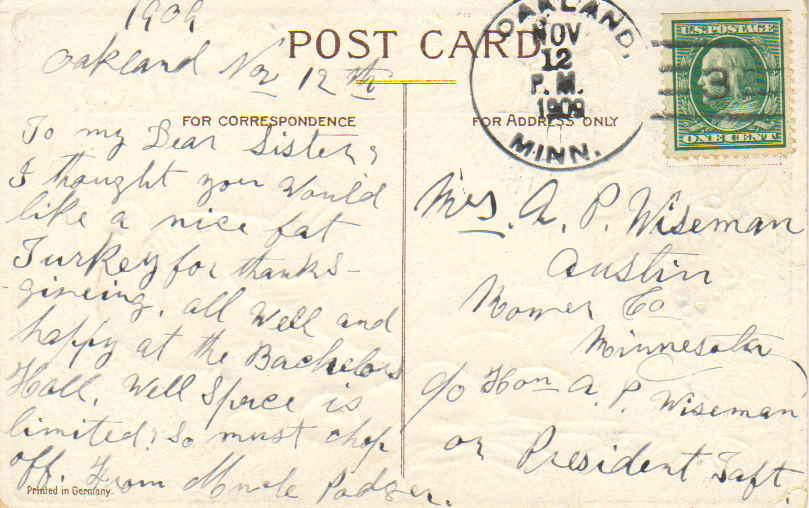 1909
Oakland Nov 12th
POST CARD
FOR CORRESPONDENCE
To my Dear Sister,
I thought you would
like a nice fat
Turkey for thanks-
giveing. all well and
happy at the Bachelors
Hall. Well Space is
limited: so must chop
off. From Uncle Podger.
Printed in Germany.
OAKLAND,
NOV
12
P.M.
1909
MINN.
3
U.S. POSTAGE
ONE CENT
FOR ADDRESS ONLY
Mrs. A. P. Wiseman
Austin
Mower Co
Minnesota
c/o Hon A. P. Wiseman
or President Taft.